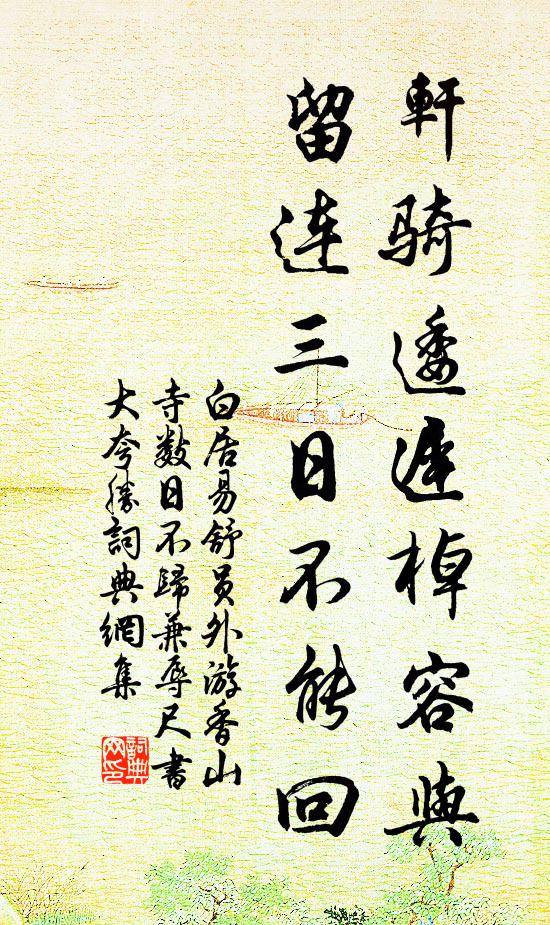 軒騎逶遲棹容與
留連三日不能回
白居易舒员外游香山
寺数日不歸兼辱尺書
大夸勝詞典網集
詞典网印